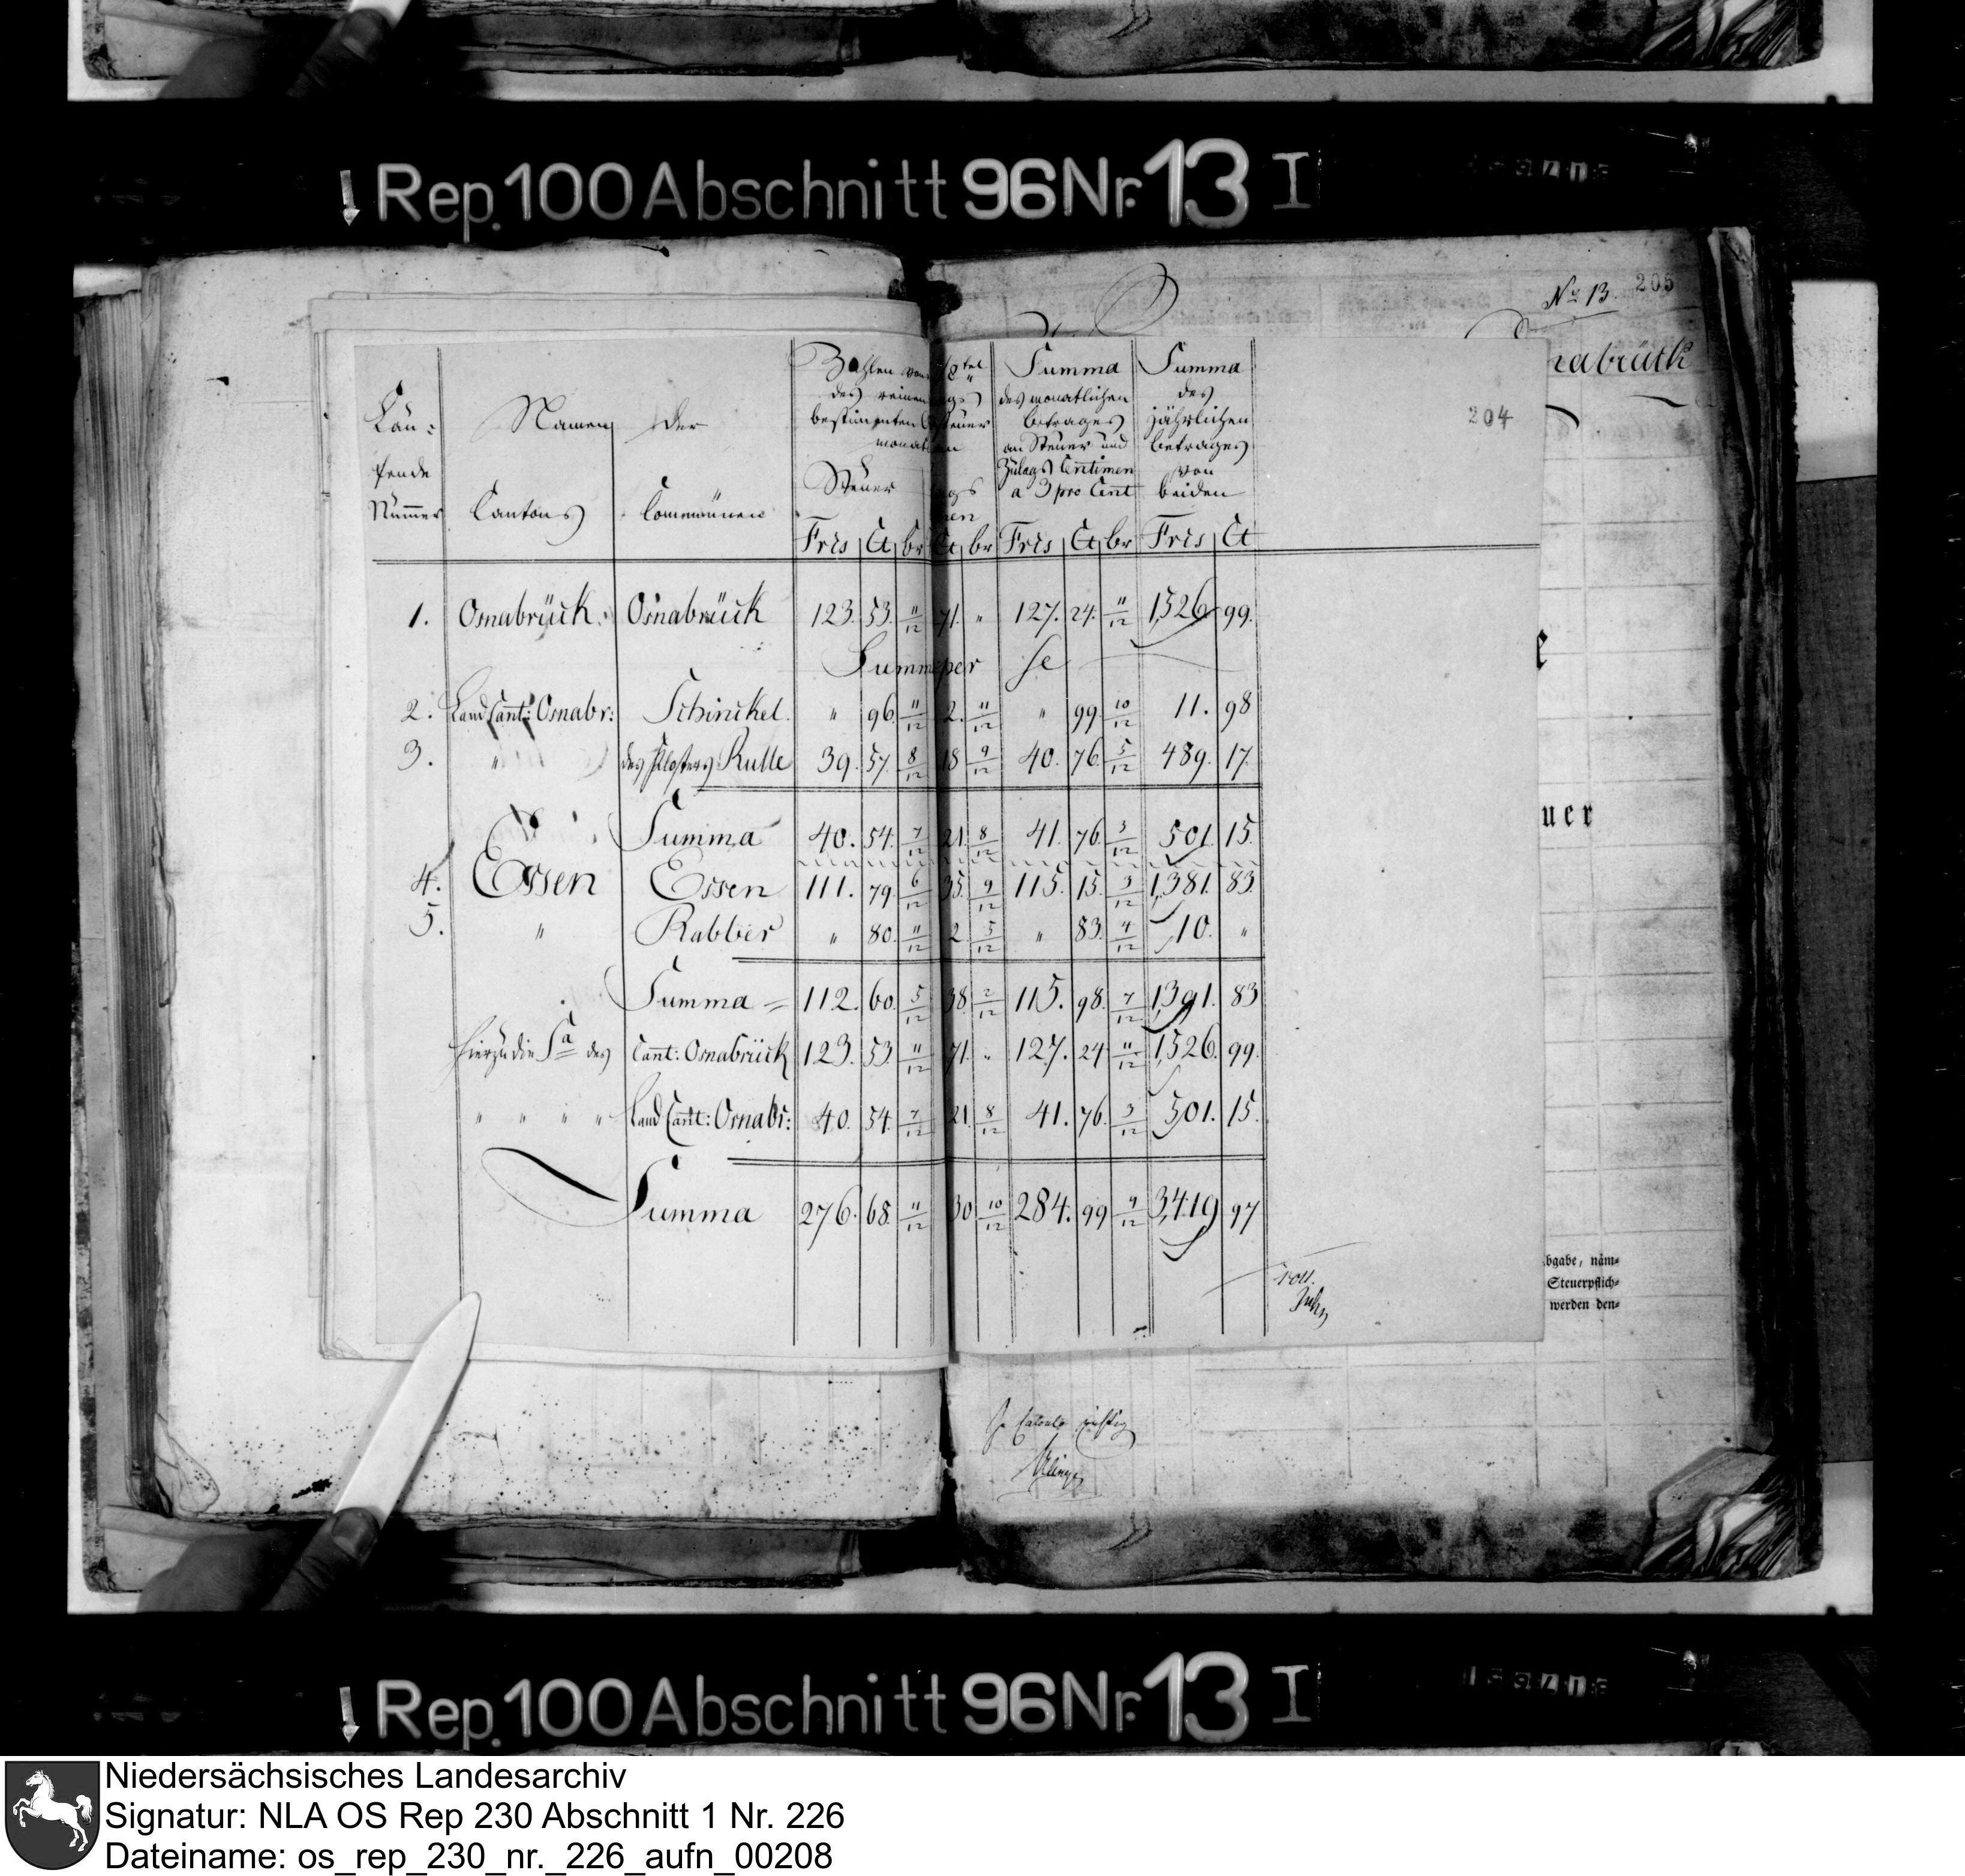 Rep. 100 Abschnitt 96 Nr. 13 I
No 13. 205
nabrück
204
Läu-
fende
Nummer
Namen der
Cantons Communen
Steuer
Summa
des monatlichen
Betrages
an Steuer und
Zulags Centimen
a 3 pro Cent
Summa
des
jährlichen
Betrages
von
beiden
Frcs Ct br Ct br Frcs Ct br Frcs Ct
1. Osnabrück. Osnabrück 123. 53. 11/12 71. " 127. 24. 11/12 1,526 99.
Summa per se
2. Land Cant: Osnabr: Schinckel. " 96. 11/12 2. 11/12 " 99. 10/12 11. 98
3. " des Klosters Rulle 39. 57. 8/12 18 9/12 40. 76. 5/12 489. 17.
Summa 40. 54. 7/12 21. 8/12 41. 76. 3/12 501. 15.
4. Essen Essen 111. 79. 6/12 35. 9/12 115. 15. 3/12 1,381. 83.
5. " Rabber " 80. 11/12 2. 5/12 " 83. 4/12 10. "
Summa = 112. 60. 5/12 38. 2/12 115. 98. 7/12 1,391. 83
Hierzu die Sa des Cant: Osnabrück 123. 53. 11/12 71. " 127. 24 11/12 1,526. 99.
" " " " Land Cant: Osnabr: 40. 54. 7/12 21. 8/12 41. 76. 3/12 501. 15.
Summa 276. 68. 11/12 30 10/12 284. 99 9/12 3,419 97
e
uer
bgabe, näm-
Steuerpflich-
werden den-
Rep. 100 Abschnitt 96 Nr. 13 I
Niedersächsisches Landesarchiv
Signatur: NLA OS Rep 230 Abschnitt 1 Nr. 226
Dateiname: os_rep_230_nr._226_aufn_00208